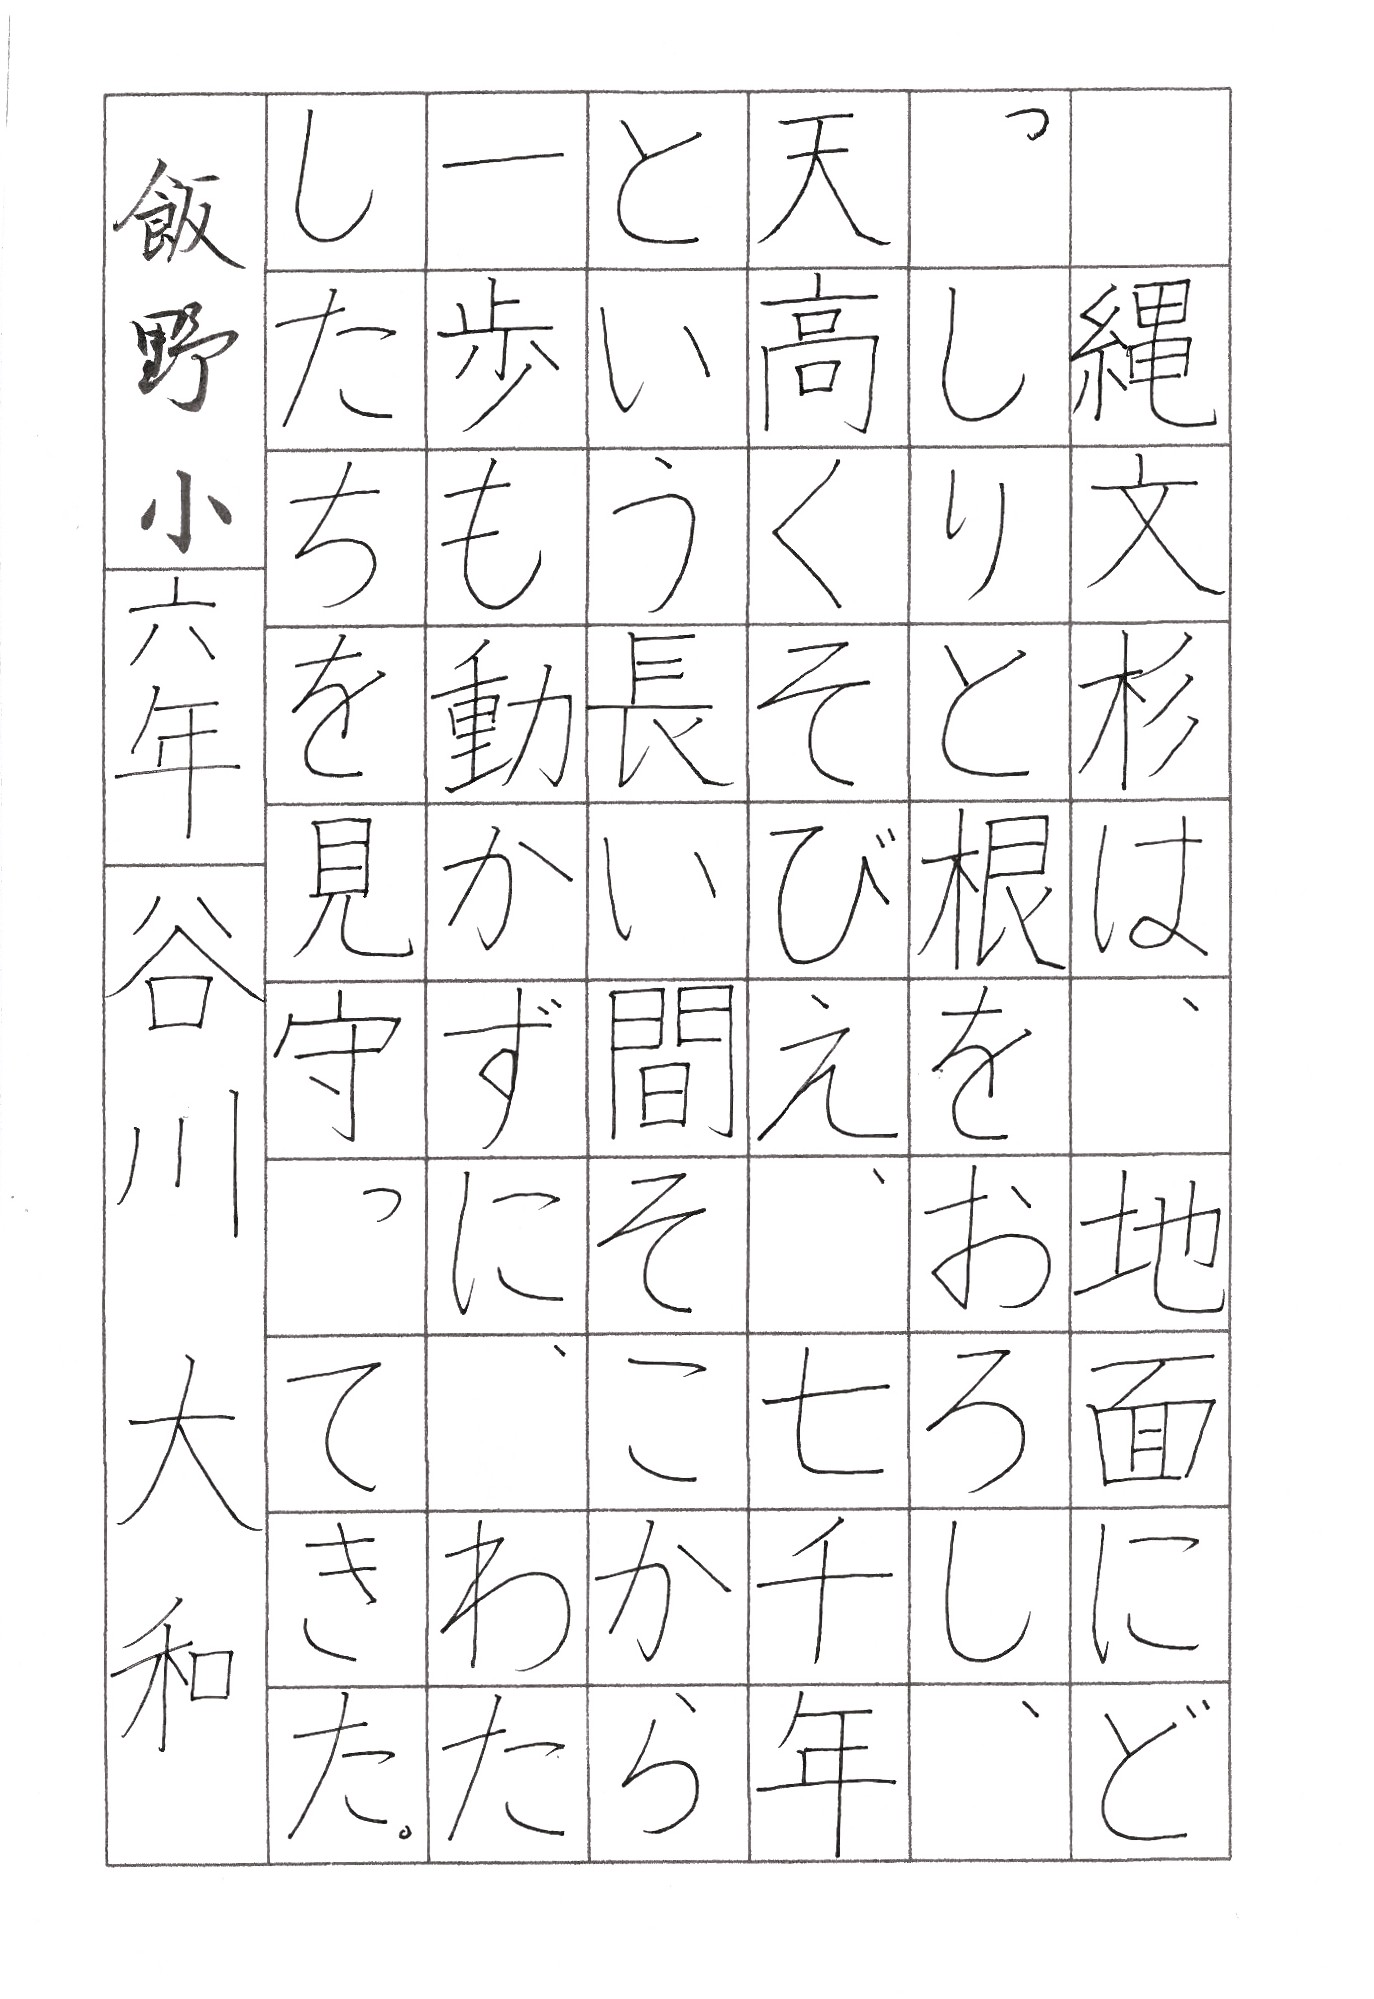 縄文杉は、地面にど
っしりと根をおろし、
天高くそびえ、七千年
という長い間そこから
一歩も動かずに、わた
したちを見守ってきた。
飯野小 六年 谷川大和